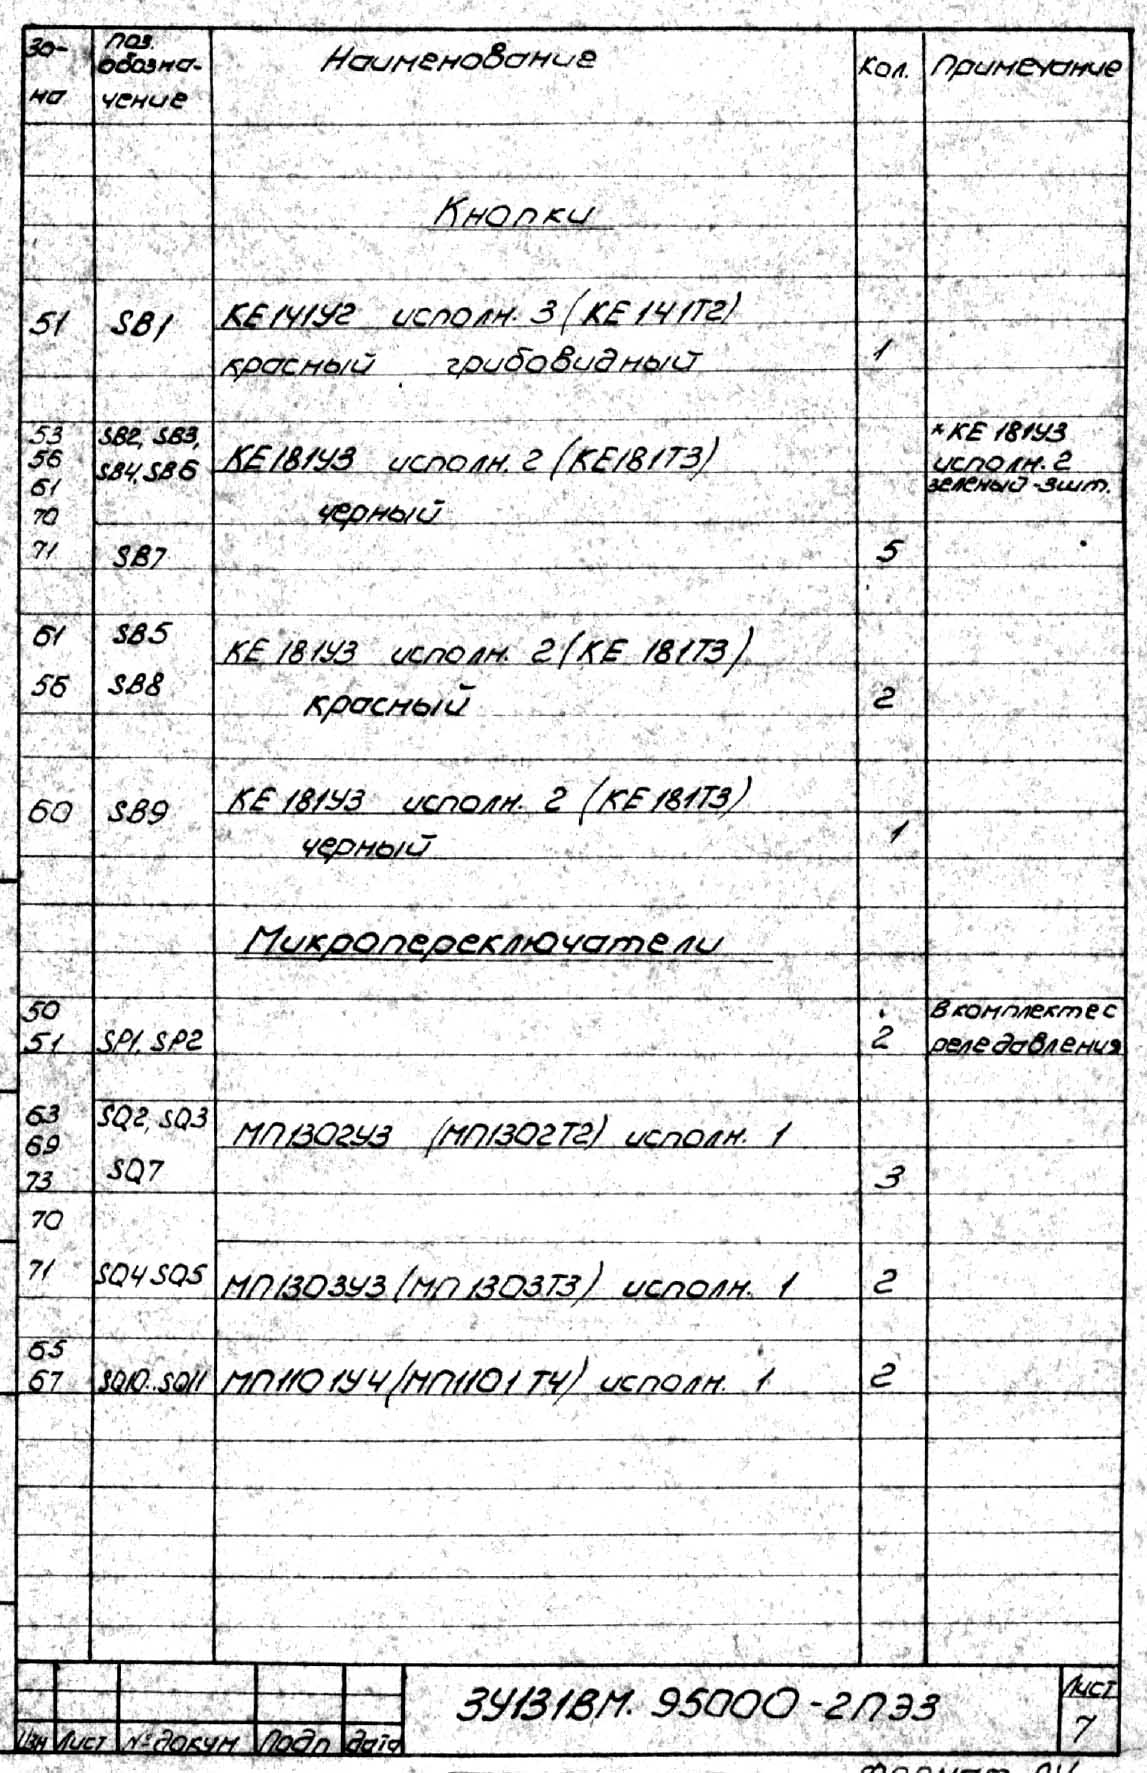 Зо- Поз. Наименование Кол. Примечание
обозна-
на чение
Кнопки
51 SB1 КЕ141У2 исполн. 3 (КЕ 141Т2)
красный грибовидный 1
53 SB2, SB3, * КЕ 181У3
56 SB4, SB6 КЕ181У3 исполн. 2 (КЕ181Т3) исполн. 2
61 зеленый - 3шт.
70 черный
71 SB7 5
61 SB5 КЕ 181У3 исполн. 2 (КЕ 181Т3)
56 SB8 красный 2
60 SB9 КЕ 181У3 исполн. 2 (КЕ 181Т3)
черный 1
Микропереключатели
50 В комплекте с
51 SP1, SP2 2 реле давления
63 SQ2, SQ3 МП1302У3 (МП1302Т2) исполн. 1
69
73 SQ7 3
70
71 SQ4 SQ5 МП1303У3 (МП 1303Т3) исполн. 1 2
65
67 SQ10..SQ11 МП1101У4 (МП1101Т4) исполн. 1 2
3У131ВМ. 95000-2ПЭ3 Лист
7
Изм Лист № докум Подп Дата
Формат